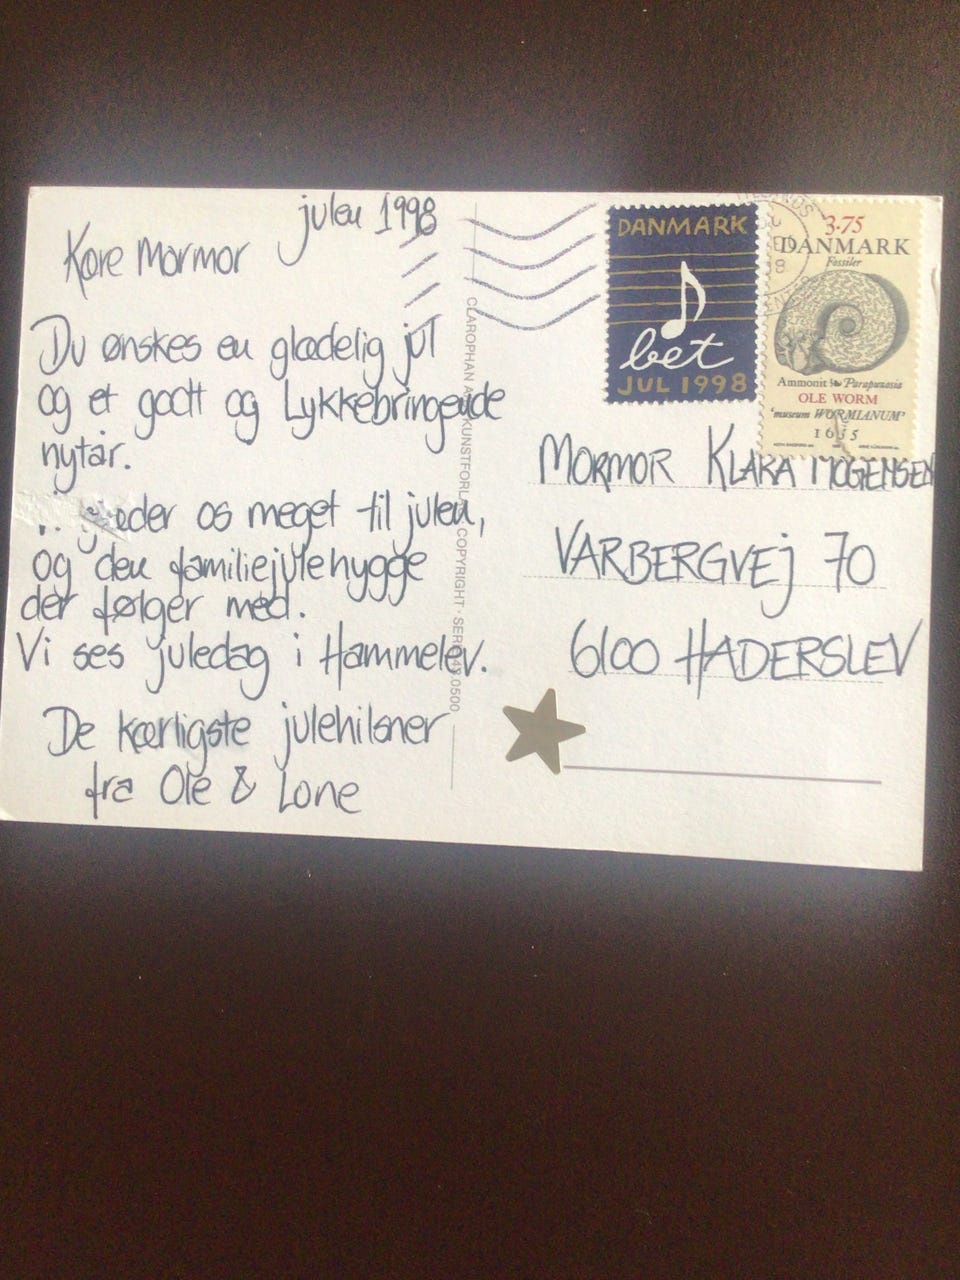 julen 1998
Kære Mormor
Du ønskes en glædelig jul
og et godt og Lykkebringende
nytår.
glæder os meget til julen,
og den familiejulehygge
der følger med.
Vi ses juledag i Hammelev.
De kærligste julehilsner
fra Ole & Lone
COPYRIGHT
DANMARK
bet
JUL 1998
3.75
DANMARK
Fossiler
Ammonit Parapuzosia
OLE WORM
'museum WORMIANUM'
1655
MORMOR KLARA MOGENSEN
VARBERGVEJ 70
6100 HADERSLEV